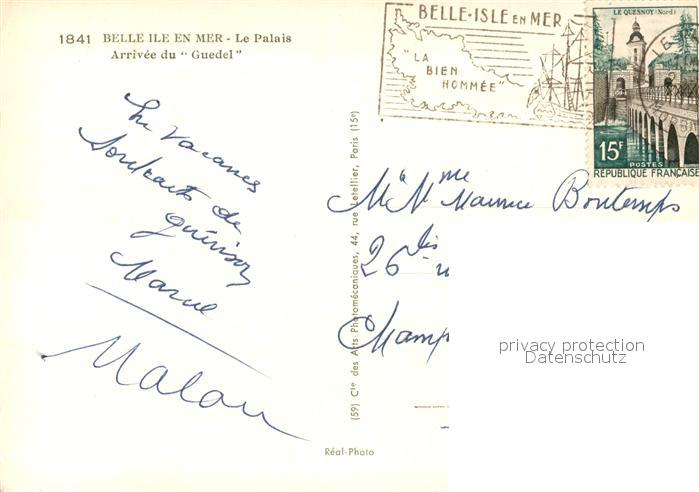 1841 BELLE ILE EN MER - Le Palais
Arrivée du "Guedel"
BELLE-ISLE EN MER
"LA
BIEN
NOMMÉE"
LE QUESNOY (Nord)
15F
POSTES
RÉPUBLIQUE FRANÇAISE
Vacances
Souhaits de
guérison
(59) Cie des Arts Photomécaniques, 44, rue Letellier, Paris (15e)
Mr Mme Maurice Bontemps
26 bis
Champ
privacy protection
Datenschutz
Réal-Photo